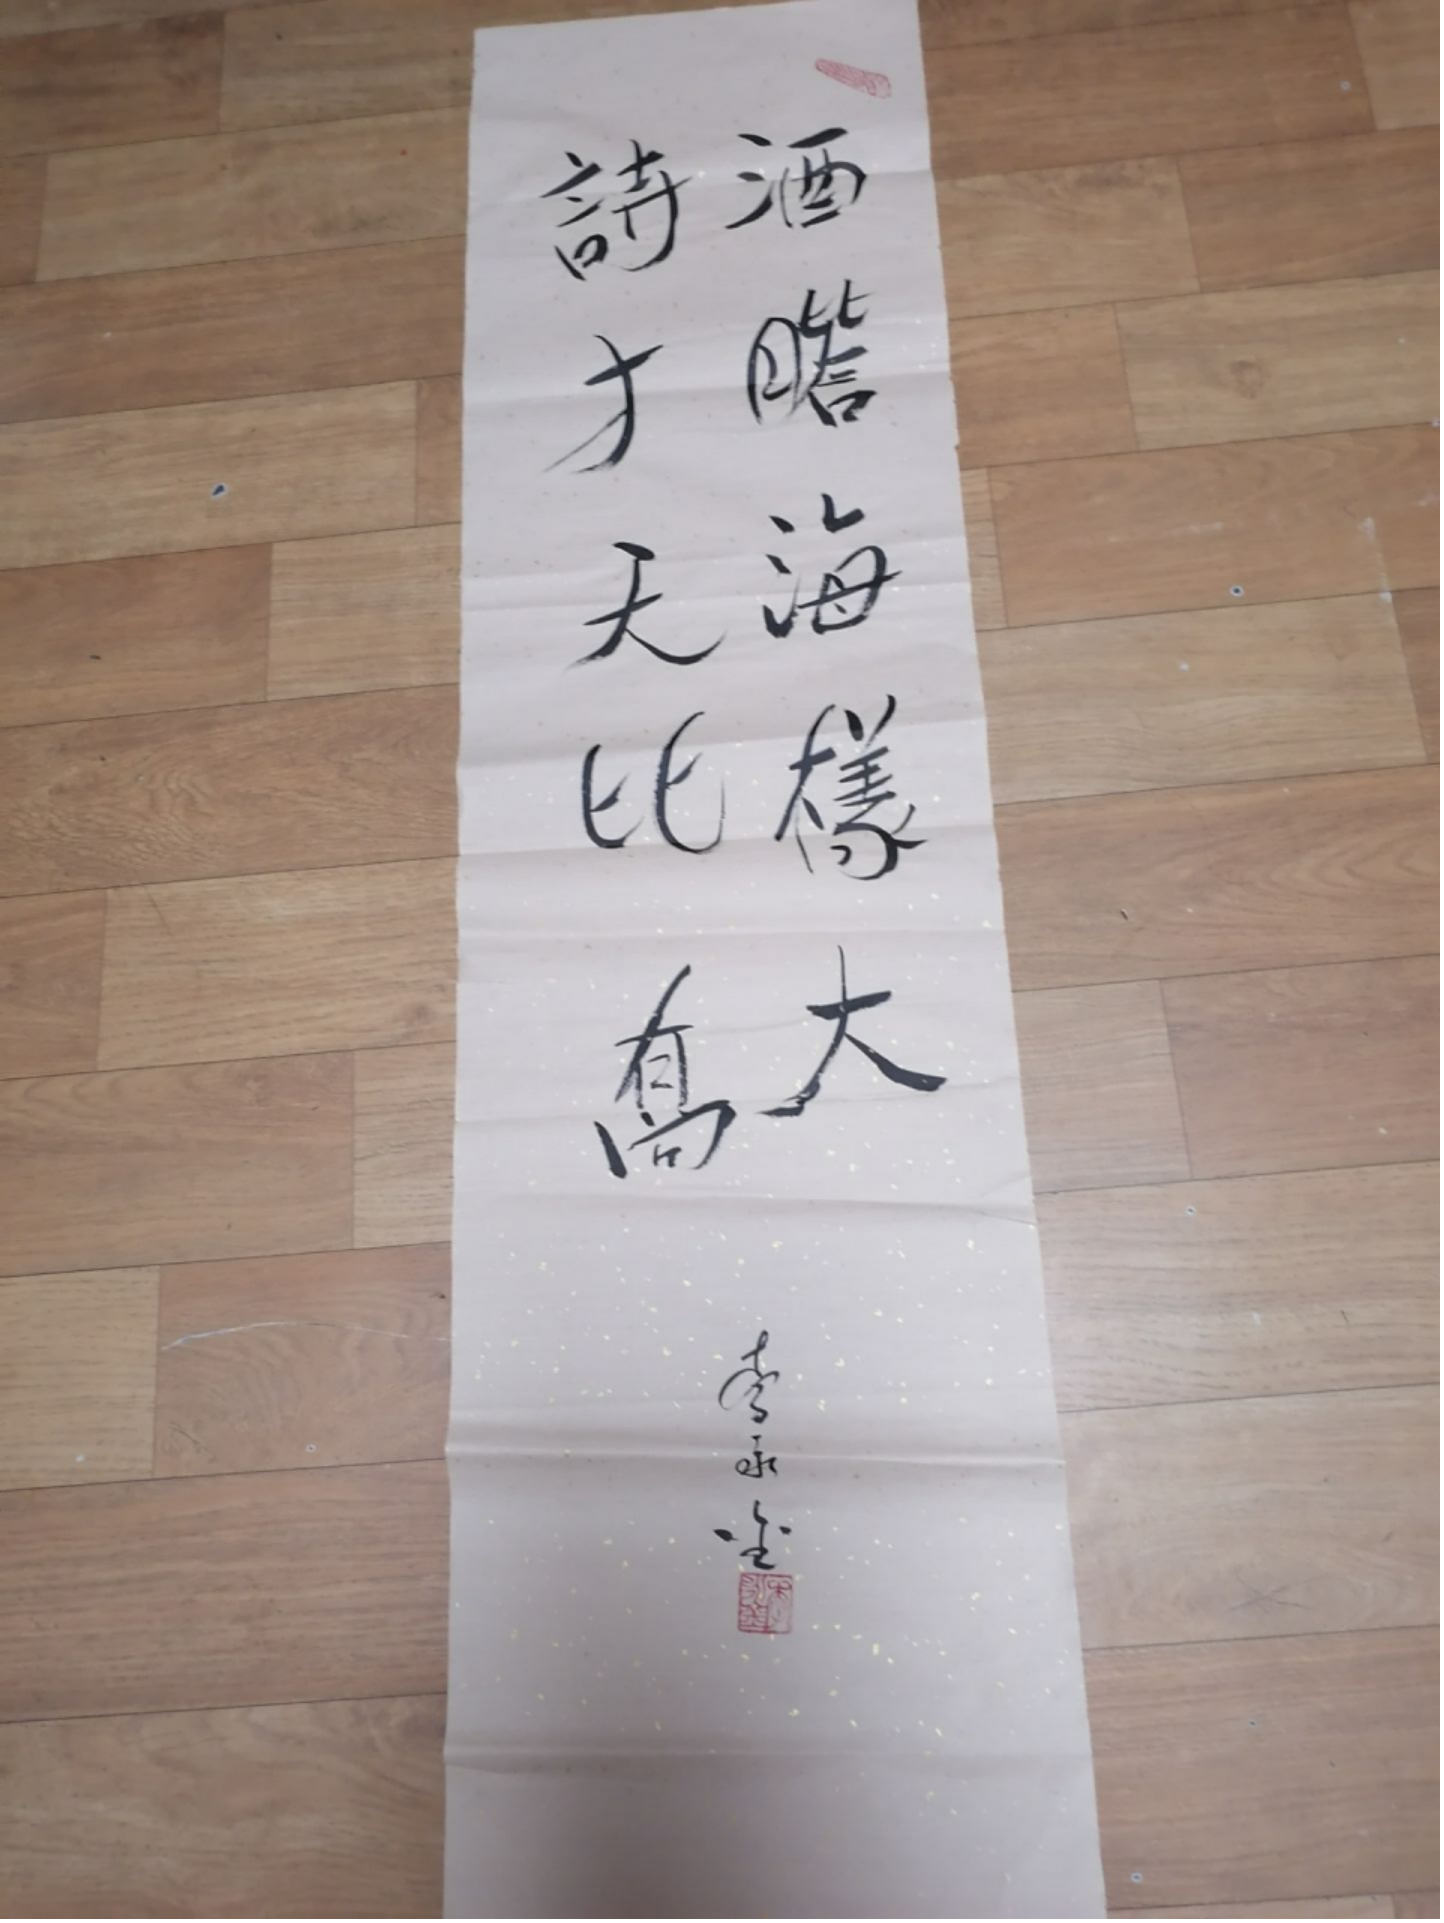 酒膽海樣大
詩才天比高
李永金